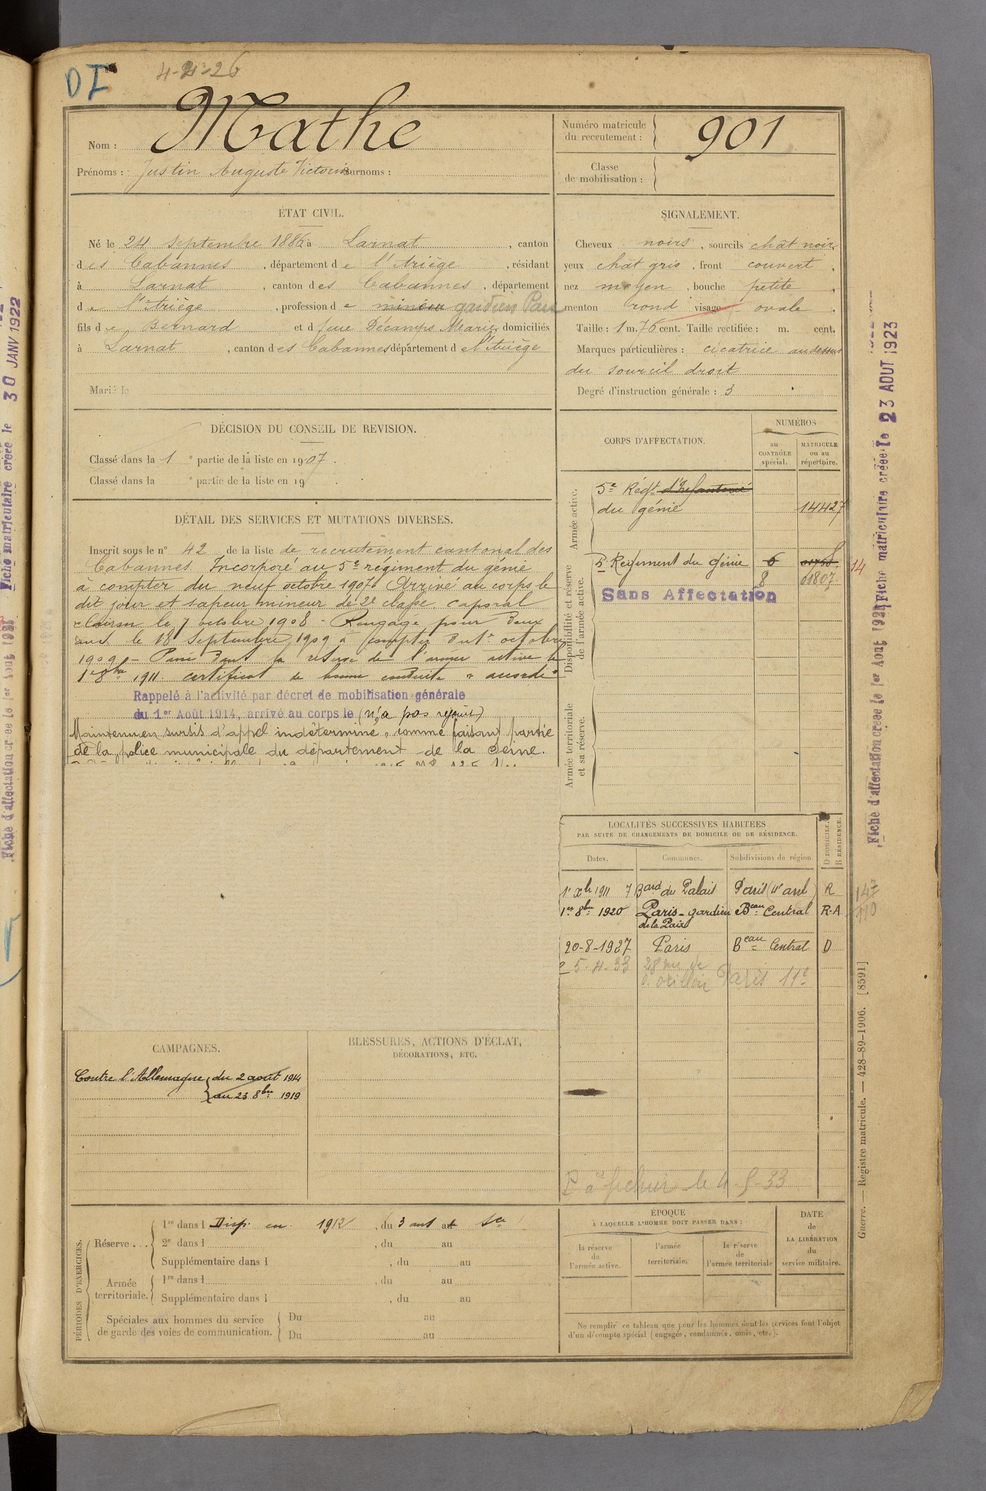 DI
4-2-26
Nom : Mathe
Prénoms : Justin Auguste Victorin Surnoms :
Numéro matricule du recrutement : 901
Classe de mobilisation :
ÉTAT CIVIL.
Né le 24 septembre 1886 à Larnat, canton
des Cabannes, département de l'Ariège, résidant
à Larnat, canton des Cabannes, département
de l'Ariège, profession de mineur gardien Paix
fils de Bernard et de feue Décamps Marie, domiciliés
à Larnat, canton des Cabannes département de l'Ariège
Marié à
SIGNALEMENT.
Cheveux noirs, sourcils chât noir,
yeux chât gris, front couvert,
nez moyen, bouche petite,
menton rond visage ovale.
Taille : 1 m. 76 cent. Taille rectifiée : m. cent.
Marques particulières : cicatrice au dessus
du sourcil droit
Degré d'instruction générale : 3
DÉCISION DU CONSEIL DE REVISION.
Classé dans la 1 e partie de la liste en 1907.
Classé dans la e partie de la liste en 19
DÉTAIL DES SERVICES ET MUTATIONS DIVERSES.
Inscrit sous le n° 42 de la liste de recrutement cantonal des
Cabannes. Incorporé au 5e régiment du génie
à compter du neuf octobre 1907. Arrivé au corps le
dit jour et sapeur mineur de 2e classe. Caporal
clairon le 7 octobre 1908. Rengagé pour deux
ans le 18 Septembre 1909 à compter du 1er octobre
1909. Passé dans la réserve de l'armée active le
1er 8bre 1911. certificat de bonne conduite "accordé"
Rappelé à l'activité par décret de mobilisation générale
du 1er Août 1914, arrivé au corps le (n'a pas rejoint)
Maintenu en sursis d'appel indéterminé, comme faisant partie
de la police municipale du département de la Seine.
CORPS D'AFFECTATION.
NUMÉROS
au CONTRÔLE spécial.
MATRICULE ou au répertoire.
Armée active.
5e Régt d'Infanterie
du génie 14427
Disponibilité et réserve de l'armée active.
5e Régiment du Génie 6
8 01807 14
Sans Affectation
Armée territoriale et sa réserve.
LOCALITÉS SUCCESSIVES HABITÉES
PAR SUITE DE CHANGEMENTS DE DOMICILE OU DE RÉSIDENCE.
Dates. Communes. Subdivisions de région. D DOMICILE. R RÉSIDENCE.
1er Xbre 1911 7 Bard du Palais Paris (4e arrt) R 147
1er 8bre 1920 Paris - gardien Beau Central R.A. 110
de la Paix
20-8-1927 Paris Beau Central D
25.4.33 28 rue de
l'Orillon Paris 11e
fichier le 4-5-33
CAMPAGNES.
Contre l'Allemagne du 2 août 1914
au 23 8bre 1919
BLESSURES, ACTIONS D'ÉCLAT,
DÉCORATIONS, ETC.
PÉRIODES D'EXERCICES.
Réserve...
1re dans l Disp. en 1912, du 3 au
2e dans l , du au
Supplémentaire dans l , du au
Armée territoriale.
1re dans l , du au
Supplémentaire dans l , du au
Spéciales aux hommes du service
de garde des voies de communication.
Du au
Du au
ÉPOQUE
À LAQUELLE L'HOMME DOIT PASSER DANS :
la réserve de l'armée active.
l'armée territoriale.
la réserve de l'armée territoriale
DATE de LA LIBÉRATION du service militaire.
Ne remplir ce tableau que pour les hommes dont les services font l'objet
d'un décompte spécial (engagés, condamnés, omis, etc.).
Guerre. — Registre matricule. — 428-89-1906. [8591]
Fiche d'affectation créée le 1er Août 1921
Fiche matriculaire créée le 23 AOUT 1923
Fiche d'affectation créée le 1er Août
Fiche matriculaire créée le 30 JANV 1922